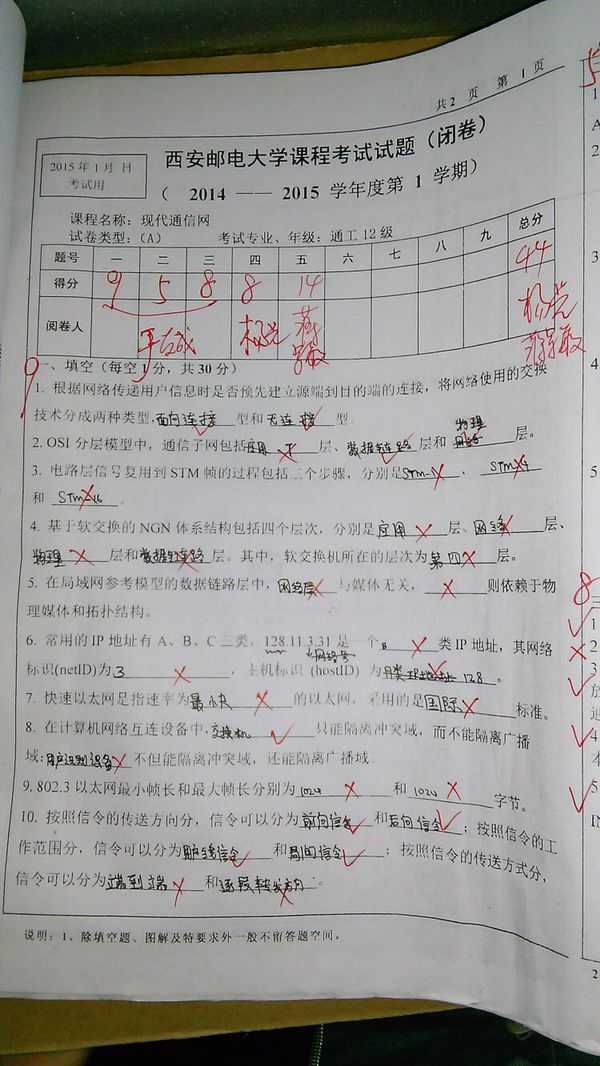 共2 页 第 1 页
2015 年 1 月 日
考试用
西安邮电大学课程考试试题（闭卷）
（ 2014 —— 2015 学年度第 1 学期）
课程名称：现代通信网
试卷类型：（A） 考试专业、年级：通工12级
题号 一 二 三 四 五 六 七 八 九 总分
得分 9 5 8 8 14 44
阅卷人
9
一、填空（每空1分，共30分）
1. 根据网络传递用户信息时是否预先建立源端到目的端的连接，将网络使用的交换
技术分成两种类型,面向连接 型和无连接 型。
物理
2. OSI 分层模型中，通信子网包括 层、数据链路层和 层。
3. 电路层信号复用到STM 帧的过程包括三个步骤，分别是STM-1 、 STM-4
和 STM-16 。
4. 基于软交换的NGN 体系结构包括四个层次，分别是应用 层、网络 层、
物理 层和数据链路 层。其中，软交换机所在的层次为第四 层。
5. 在局域网参考模型的数据链路层中，网络层 与媒体无关， 则依赖于物
理媒体和拓扑结构。
6. 常用的IP 地址有 A、B、C 三类，128.11.3.31 是一个 B 类IP 地址，其网络
网络号
标识(netID)为 3 ，主机标识 (hostID) 为 128 。
7. 快速以太网是指速率为 最小快 的以太网，采用的是国际 标准。
8. 在计算机网络互连设备中,交换机 只能隔离冲突域，而不能隔离广播
域；用户识别设备 不但能隔离冲突域，还能隔离广播域
9. 802.3 以太网最小帧长和最大帧长分别为 1024 和 1024 字节。
10. 按照信令的传送方向分，信令可以分为 前向信令 和后向信令 ；按照信令的工
作范围分，信令可以分为用户线信令 和局间信令 ；按照信令的传送方式分，
信令可以分为端到端 和逐段转发方向 。
说明：1、除填空题、图解及特要求外一般不留答题空间。